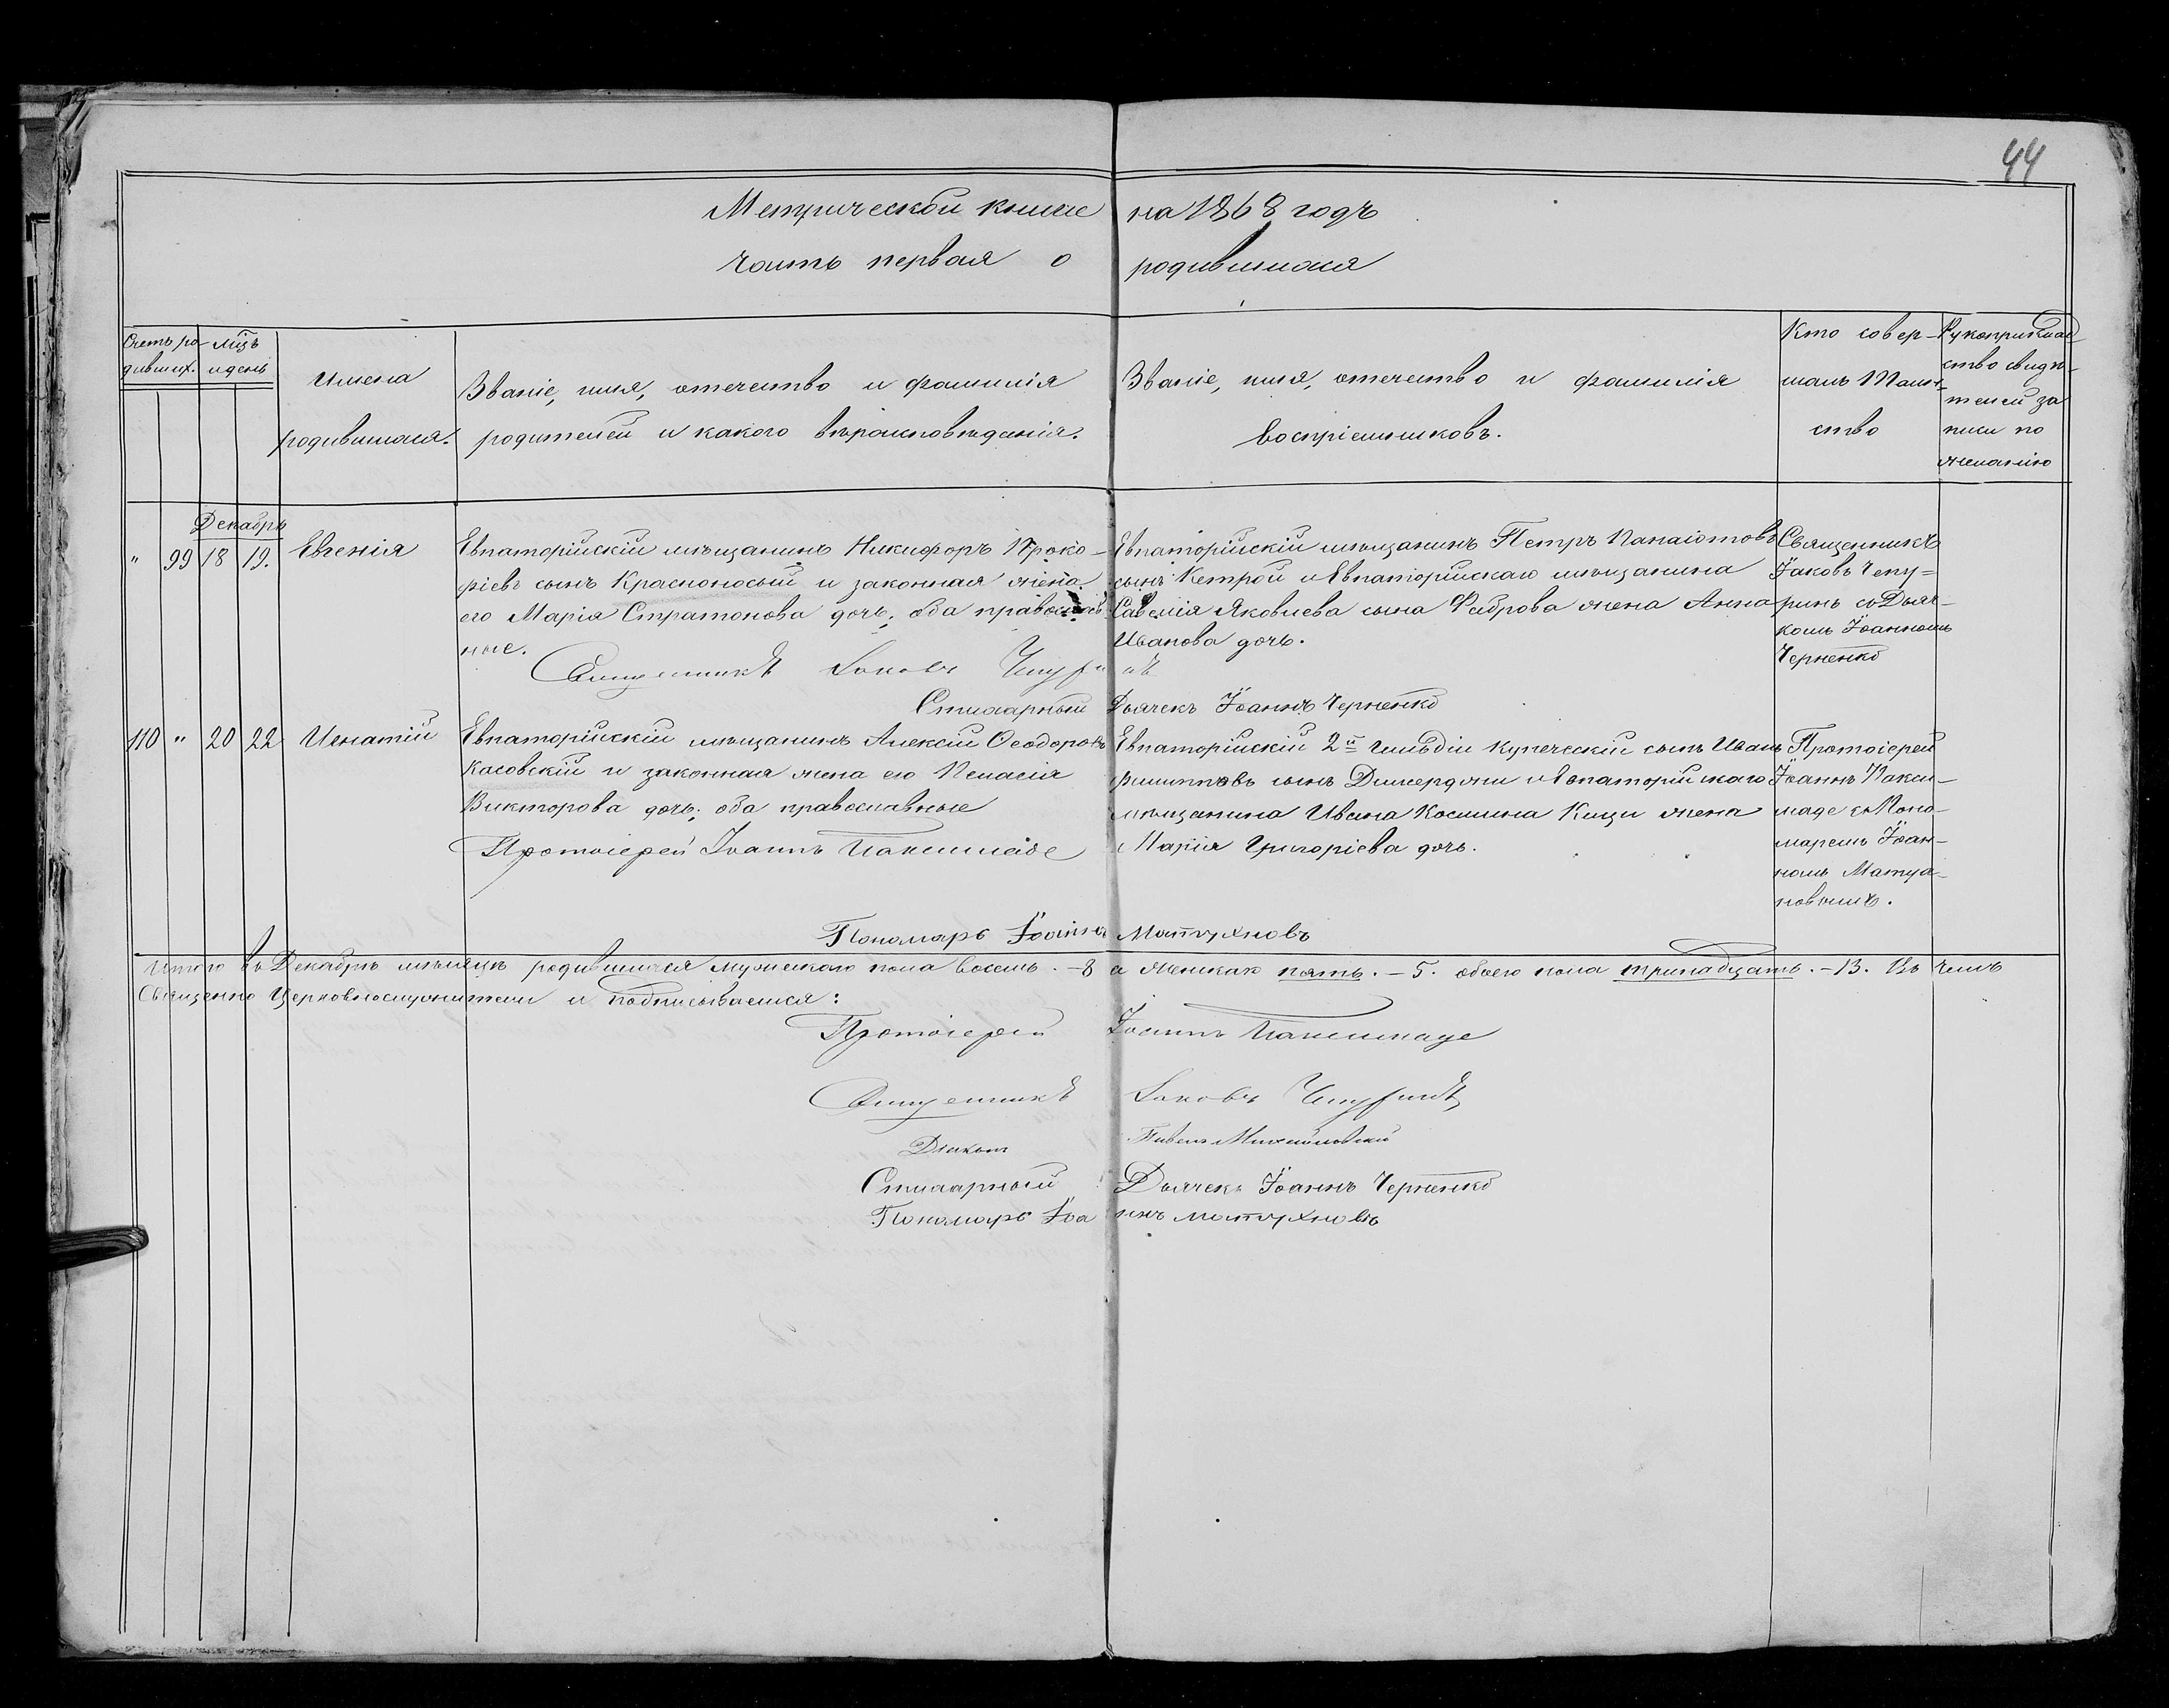 44
Метрической книги на 1868 годъ
часть первая о родившихся
Счетъ родивших.
мцъ и день
Имена родившихся.
Званіе, имя, отечество и фамилія
родителей и какого вѣроисповѣданія.
Званіе, имя, отечество и фамилія
воспріемниковъ.
Кто совер-
шалъ Таин-
ство
Рукоприклад-
ство свидѣ-
телей за
писи по
желанію
Декабрь
" 99 18 19. Евгенія
Евпаторійскій мѣщанинъ Никифоръ Проко-
фіевъ сынъ Красноносый и законная жена
его Марія Стратонова дочь; оба православ-
ные.
Евпаторійскій мѣщанинъ Петръ Панаіотовъ
сынъ Кетрой и Евпаторійскаго мѣщанина
Савелія Яковлева сына Фаброва жена Анна
Иванова дочь.
Священникъ
Іаковъ Чепу=
ринъ съ Дьяч-
комъ Іоанномъ
Черненко
Священникъ Іаковъ Чепуринъ
Стихарный Дьячекъ Іоаннъ Черненко
110 " 20 22 Игнатій
Евпаторійскій мѣщанинъ Алексій Ѳеодоровъ
Касовскій и законная жена его Пелагія
Викторова дочь; оба православные
Евпаторійскій 2й гильдіи купеческій сынъ Иванъ
Филипповъ сынъ Димерджи и Евпаторійскаго
мѣщанина Ивана Космина Кищи жена
Марія Григоріева дочь.
Протоіерей
Іоаннъ Пакси-
маде съ Поно-
маремъ Іоан-
номъ Матуа-
новымъ.
Протоіерей Іоаннъ Паксимаде
Пономарь Іоаннъ Матухновъ
Итого въ Декабрѣ мѣсяцѣ родившихся мужескаго пола восемь. – 8 а женскаго пять. – 5. обоего пола тринадцать. – 13. Въ чемъ
Священно Церковнослужители и подписываемся:
Протоіерей Іоаннъ Паксимаде
Священникъ Іаковъ Чепуринъ
Діаконъ Павелъ Михайловскій
Стихарный Дьячекъ Іоаннъ Черненко
Пономарь Іоаннъ Матухновъ